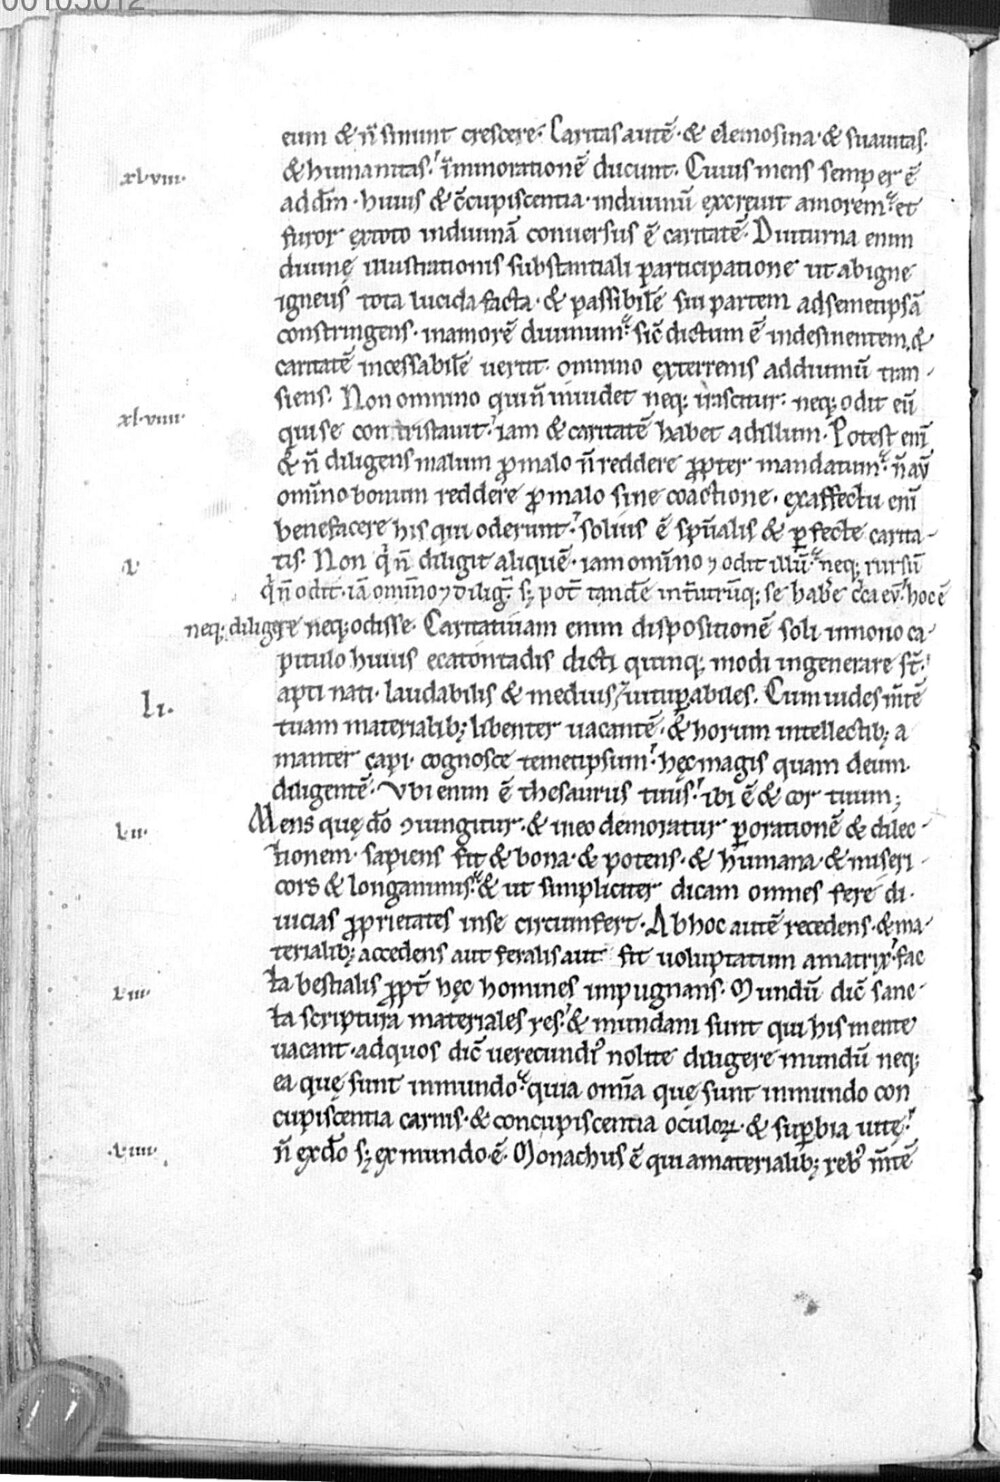 00105012
eum & n̄ sinunt crescere. Caritas autē. & elemosina. & suauitas.
xl.viii. & humanitas. īminorationē ducunt. Cuius mens semper ē
ad dm̄. huius & c̄cupiscentia. indiuinū excreuit amorem. et
furor extoto indiuinā conuersus ē caritatē. Diuturna enim
diuinę illustrationis substantiali participatione ut ab igne
igneus tota lucida facta. & passibilē sui partem ad semetipsā
constringens. inamorē diuinum. sic̄ dictum ē indesinentem. &
caritatē incessabilē uertit. omnino exterrenis addiuinū tran-
xl.viiii. siens. Non omnino qui n̄ inuidet neq; irascitur. neq; odit eū
qui se contristauit. iam & caritatē habet ad illum. Potest eni
& n̄ diligens malum pro malo n̄ reddere propter mandatum. n̄ aū
omīno bonum reddere pro malo sine coactione. ex affectu eni
benefacere his qui oderunt. solius ē spūalis & perfecte carita-
l. tis. Non q̄ n̄ diligit aliquē. iam omīno & odit illū. neq; rursū
q̄ n̄ odit. iā omīno & diliḡ. s; pot̄ tandē int̄ utrūq; se habēr c̄ca eū. hoc ē
neq; diligere neq; odisse. Caritatiuam enim dispositionē soli innono ca-
pitulo huius ecatontadis dicti quinq; modi ingenerare st̄.
apti nati. laudabilis & medius & uituperabiles. Cum uides m̄tē
li. tuam materialib; libenter uacantē. & horum intellectib; a
manter capi. cognosce temetipsum. hęc magis quam deum.
diligentē. Vbi enim ē thesaurus tuus. ibi ē & cor tuum;
lii. Mens quę dō coniungitur. & in eo demoratur per orationē & dilec-
tionem. sapiens fit & bona. & potens. & humana. & miseri-
cors & longanimis. & ut simpliciter dicam omnes fere di-
uicias proprietates in se circumfert. Ab hoc autē recedens. & ma-
terialib; accedens aut feralis aut fit uoluptatum amatrix. fac
liii. ta bestialis propt̄ hęc homines impugnans. Mundū dic̄ sanc-
ta scriptura materiales res. & mundani sunt qui his mente
uacant. ad quos dic̄ uerecundi' nolite diligere mundū neq;
ea quę sunt inmundo. quia omīa quę sunt inmundo con
cupiscentia carnis. & concupiscentia oculorum. & superbia uitę.
.liiii. n̄ ex dō s; ex mundo ē. Monachus ē qui a materialib; reb' m̄tē